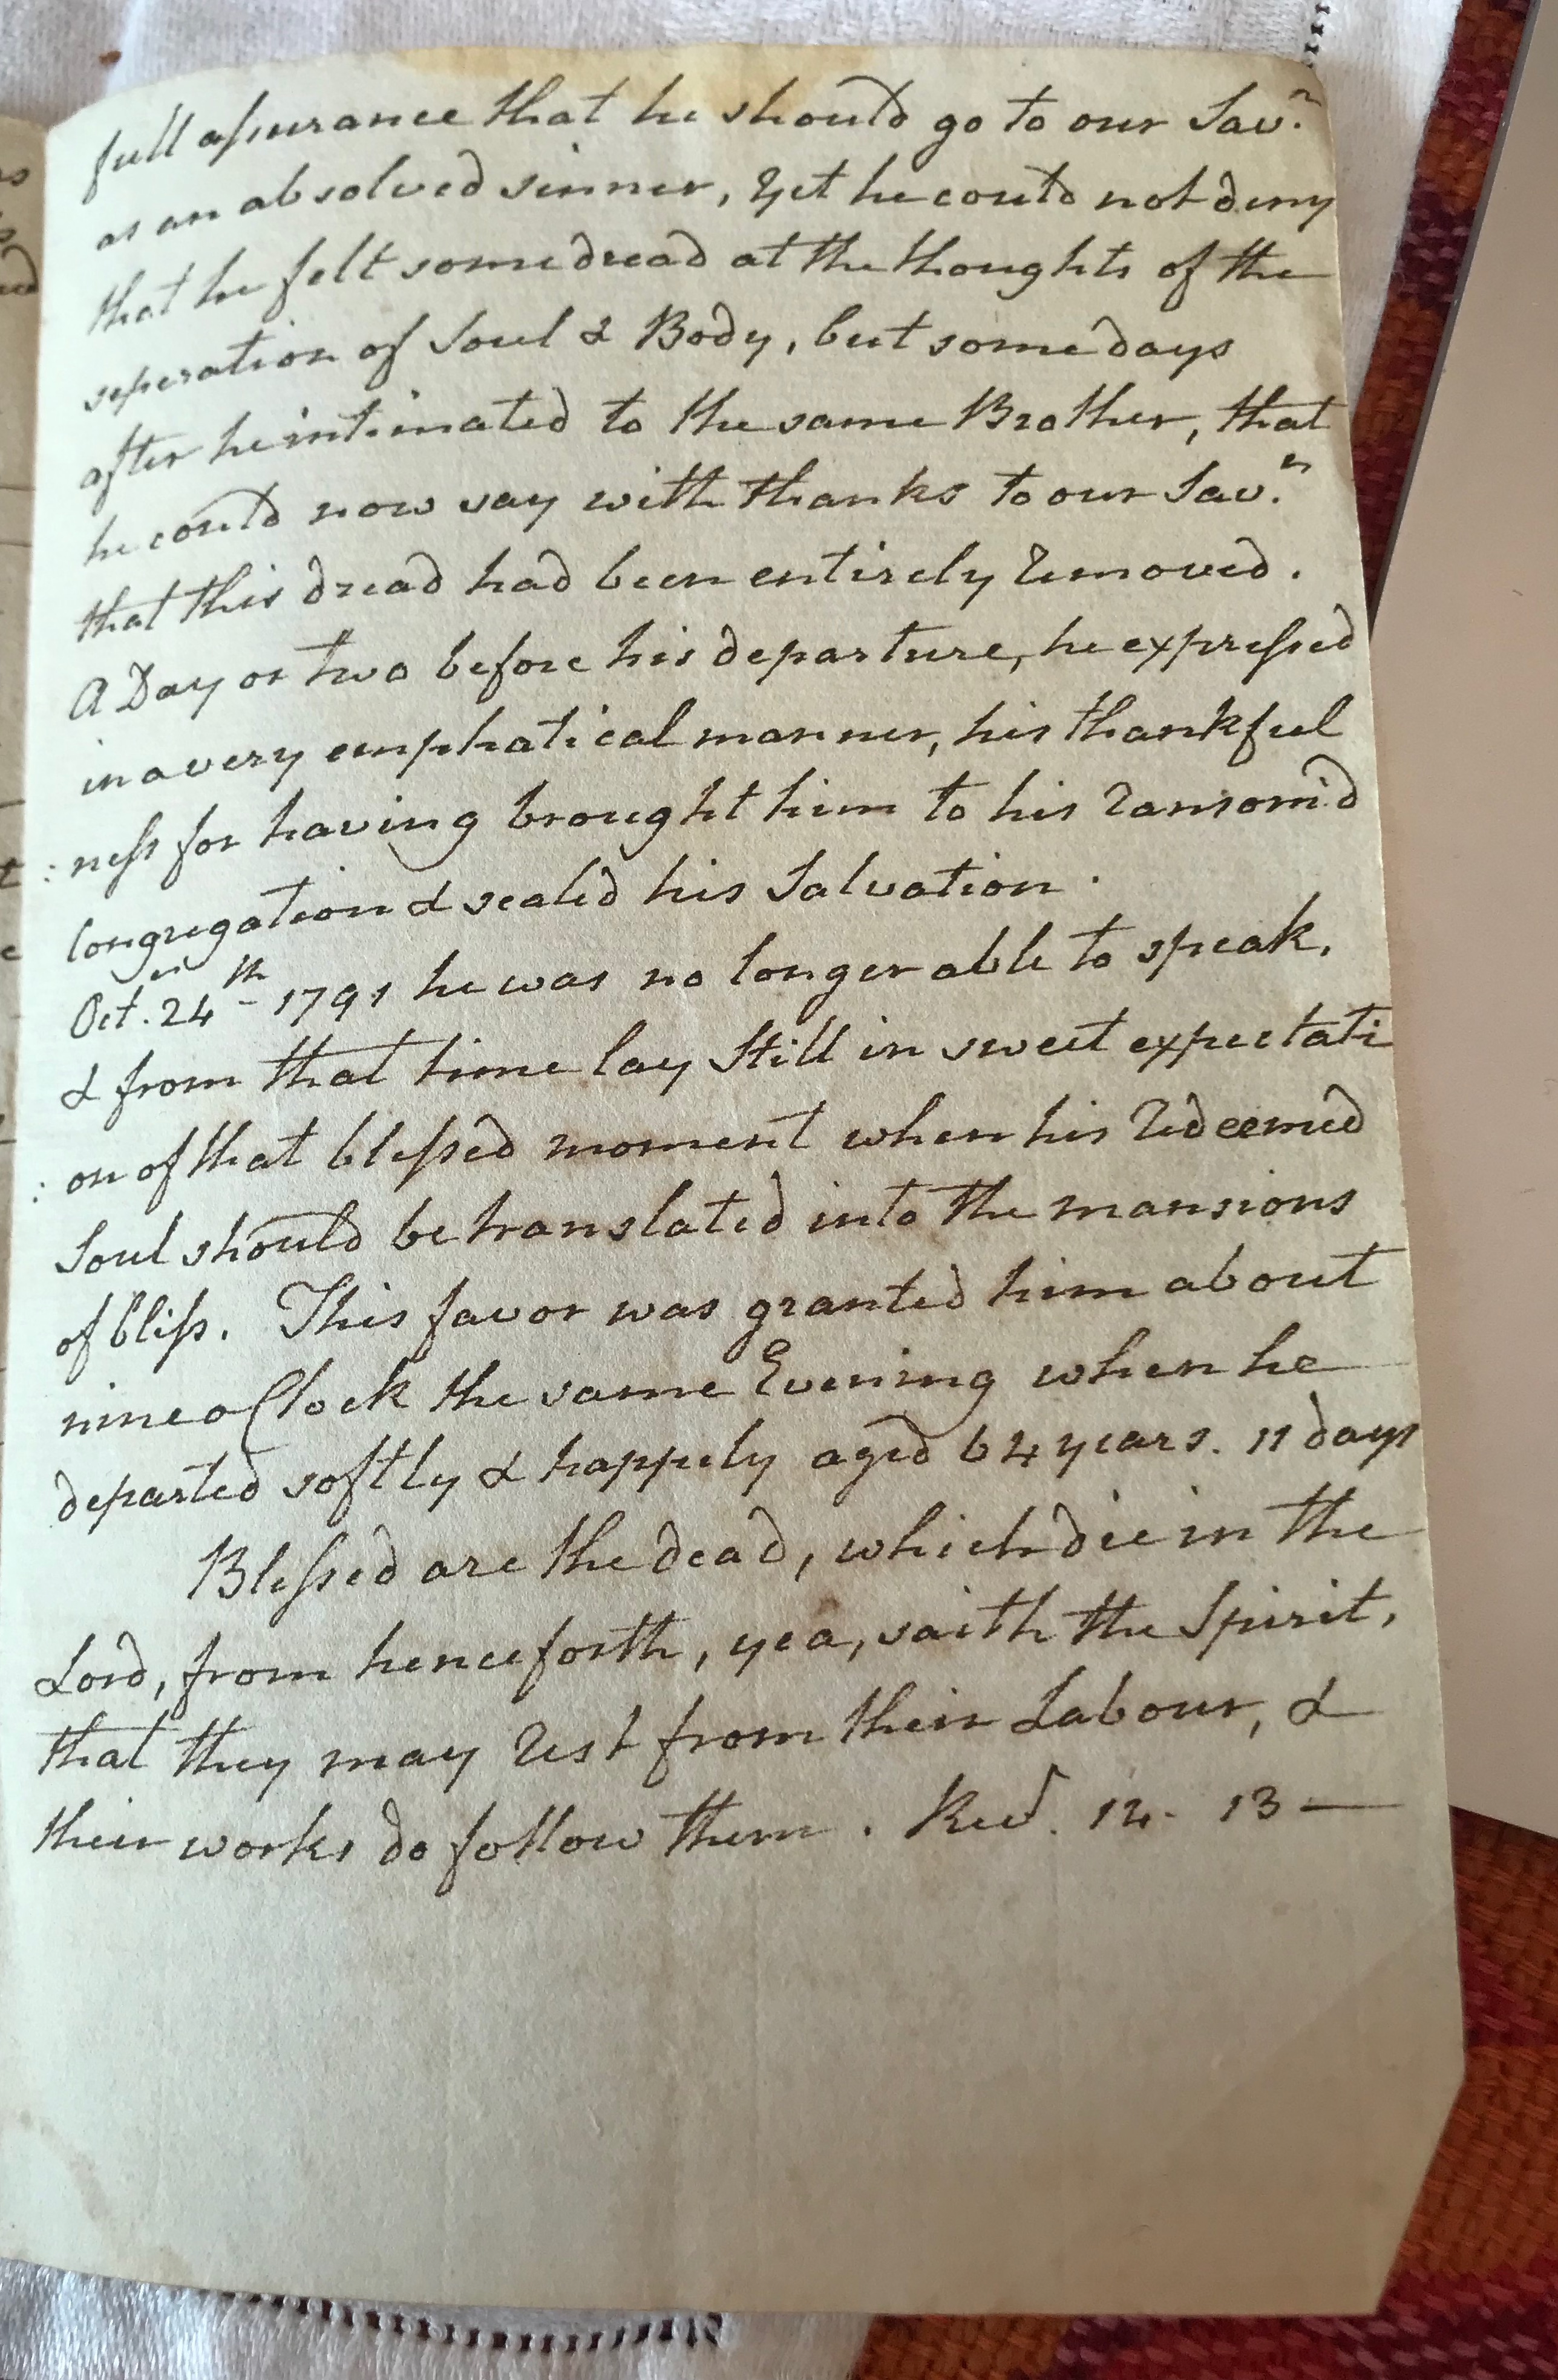 full assurance that he should go to our Sav.r
as an absolved sinner, yet he could not deny
that he felt some dread at the thoughts of the
seperation of Soul & Body, but some days
after he intimated to the same Brother, that
he could now say with thanks to our Sav.r
that this dread had been entirely removed.
A Day or two before his departure, he expressed
in a very emphatical manner, his thankful
:ness for having brought him to his ransom'd
Congregation & sealed his Salvation.
Oct. 24th 1791 he was no longer able to speak,
& from that time lay still in sweet expectati
:on of that blessed moment when his redeemed
Soul should be translated into the mansions
of bliss. This favor was granted him about
nine o Clock the same Evening when he
departed softly & happily aged 64 years. 11 days
Blessed are the dead, which die in the
Lord, from henceforth, yea, saith the Spirit,
that they may rest from their Labour, &
their works do follow them. Rev. 14. 13 —